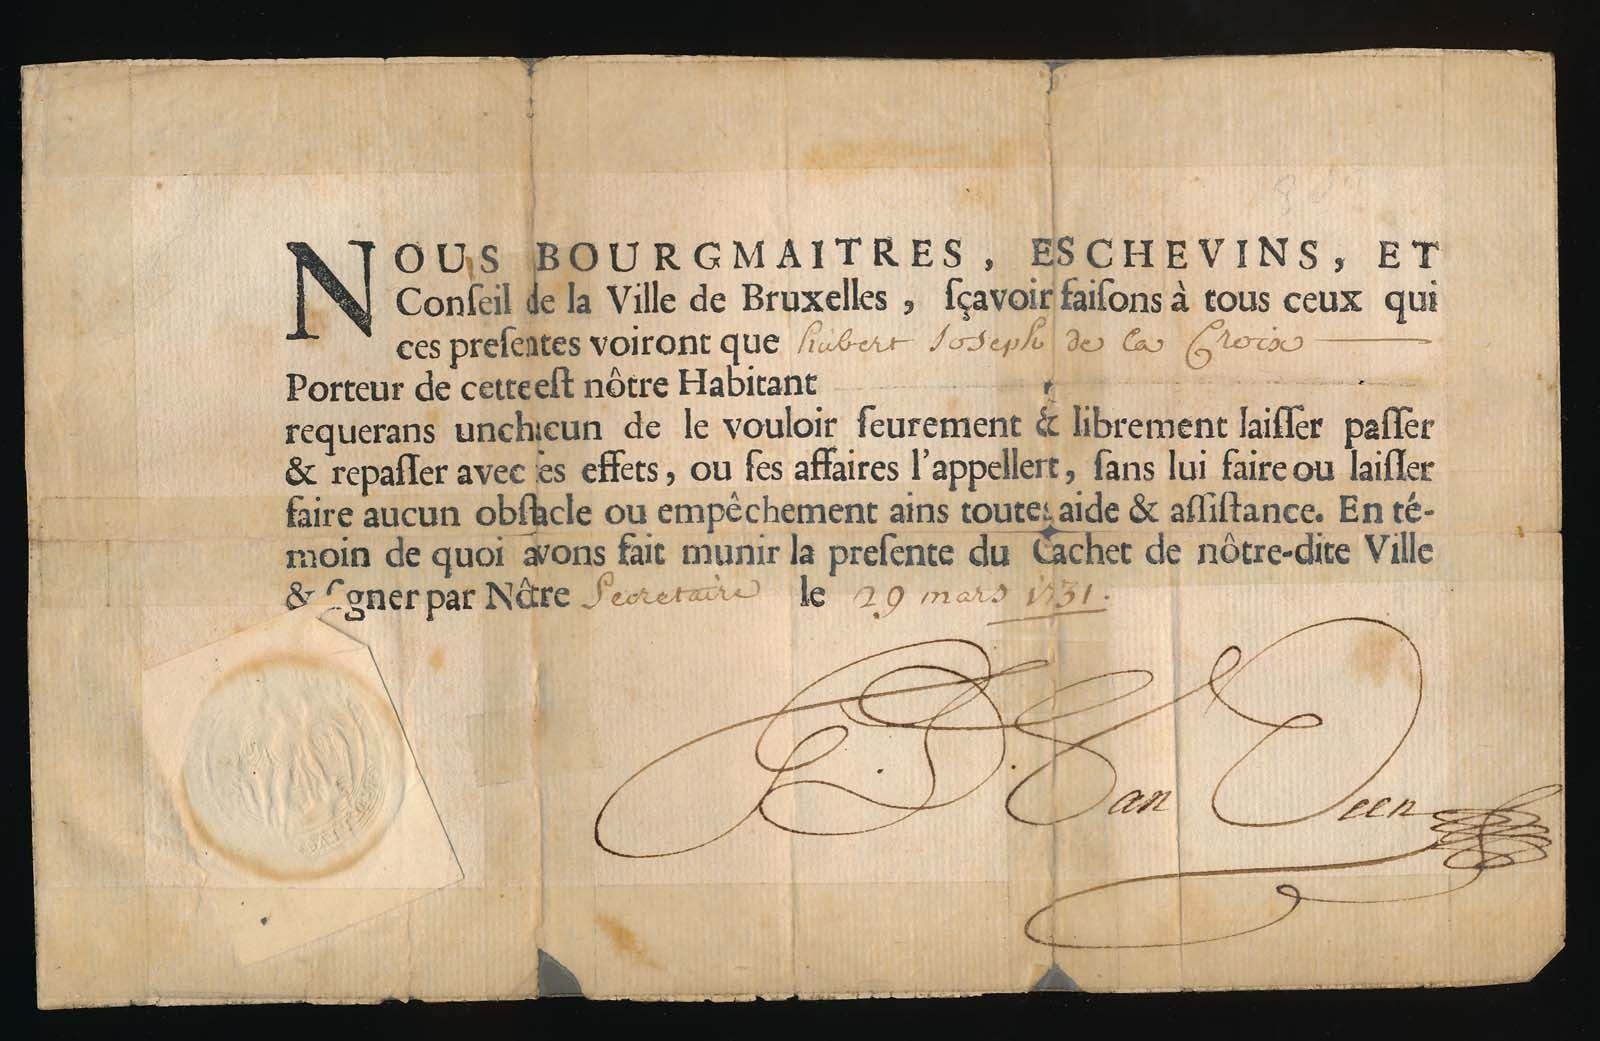 NOUS BOURGMAITRES, ESCHEVINS, ET
Conſeil de la Ville de Bruxelles, ſçavoir faiſons à tous ceux qui
ces preſentes voiront que hubert Joseph de la Croix
Porteur de cette eſt nôtre Habitant
requerans unchacun de le vouloir ſeurement & librement laiſſer paſſer
& repaſſer avec ſes effets, ou ſes affaires l'appellent, ſans lui faire ou laiſſer
faire aucun obſtacle ou empêchement ains toute aide & aſſiſtance. En té-
moin de quoi avons fait munir la preſente du Cachet de nôtre-dite Ville
& ſigner par Nôtre Secretaire le 29 mars 1731.
Van Veen